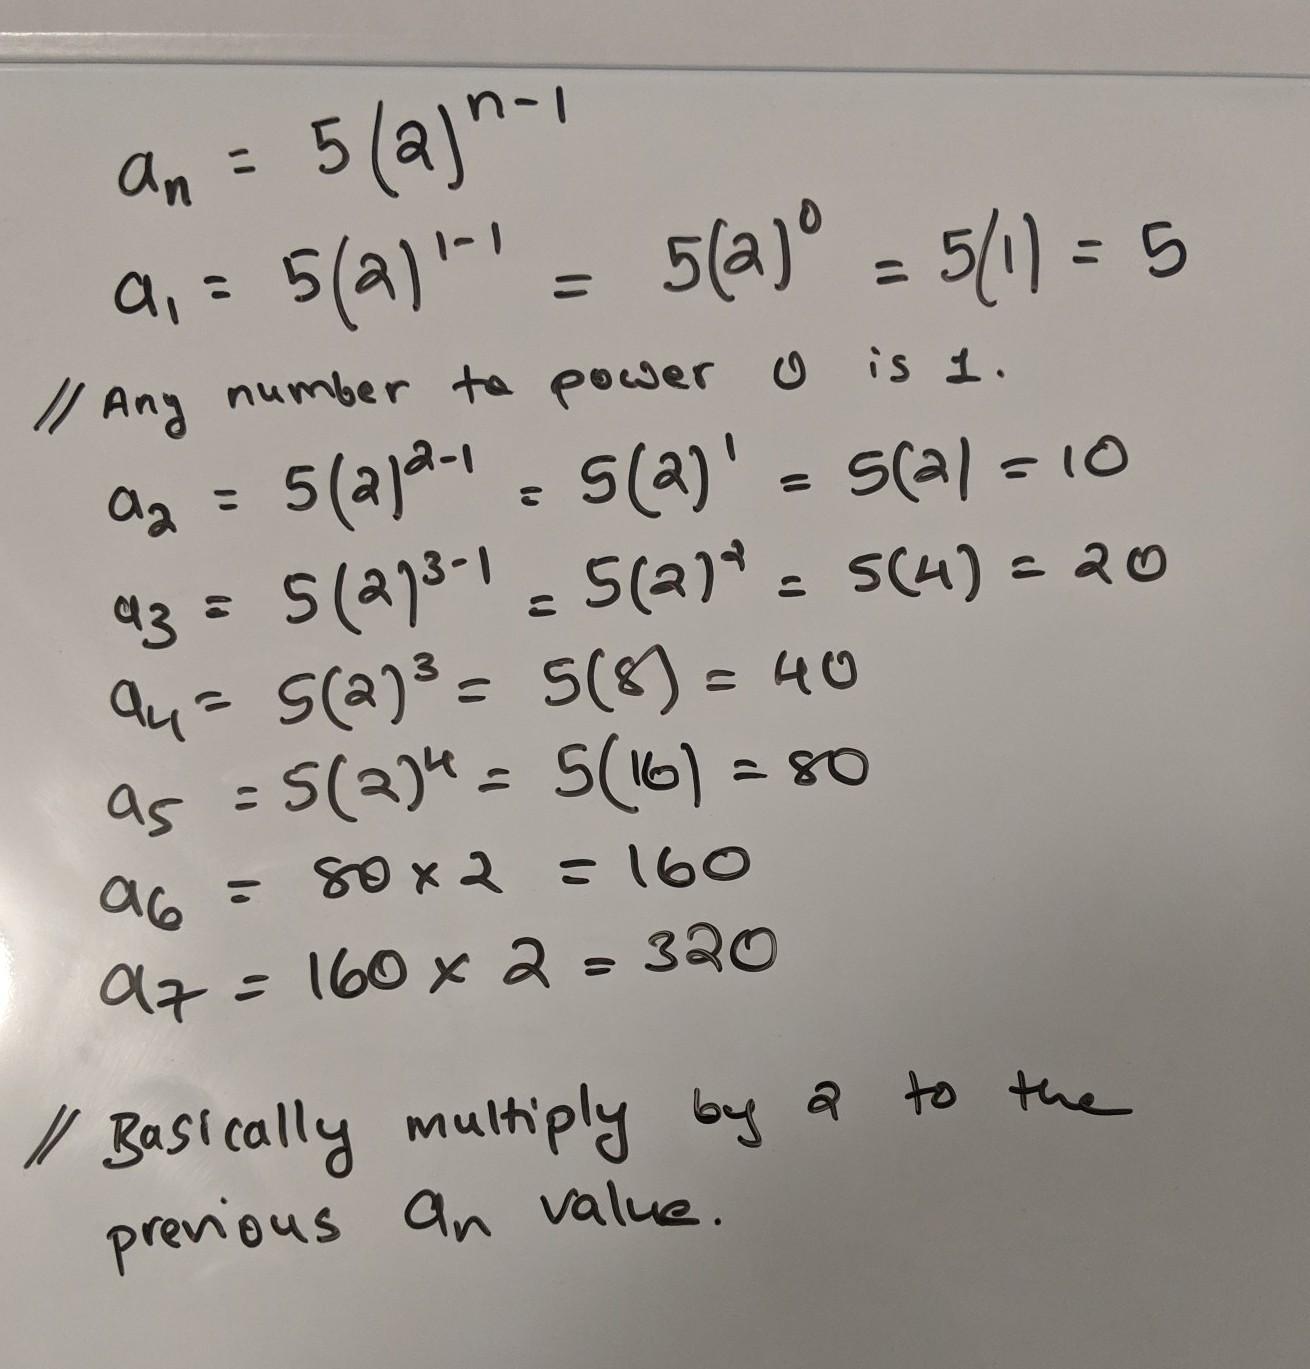 aₙ = 5(2)ⁿ⁻¹
a₁ = 5(2)¹⁻¹ = 5(2)⁰ = 5(1) = 5
// Any number to power 0 is 1.
a₂ = 5(2)²⁻¹ = 5(2)¹ = 5(2) = 10
a₃ = 5(2)³⁻¹ = 5(2)² = 5(4) = 20
a₄ = 5(2)³ = 5(8) = 40
a₅ = 5(2)⁴ = 5(16) = 80
a₆ = 80 × 2 = 160
a₇ = 160 × 2 = 320
// Basically multiply by 2 to the
previous aₙ value.